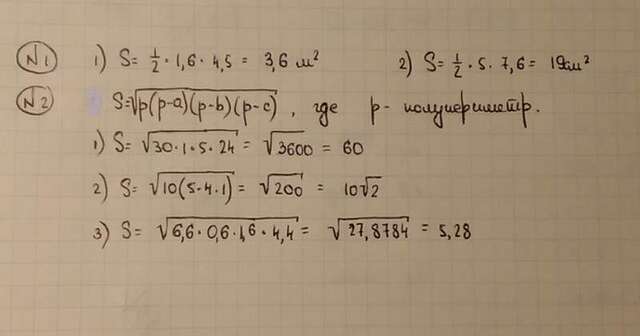 N1 1) S = 1/2 · 1,6 · 4,5 = 3,6 м² 2) S = 1/2 · 5 · 7,6 = 19см²
N2 S = √p(p-a)(p-b)(p-c) , где p - полупериметр.
1) S = √30·1·5·24 = √3600 = 60
2) S = √10(5·4·1) = √200 = 10√2
3) S = √6,6·0,6·1,6·4,4 = √27,8784 = 5,28